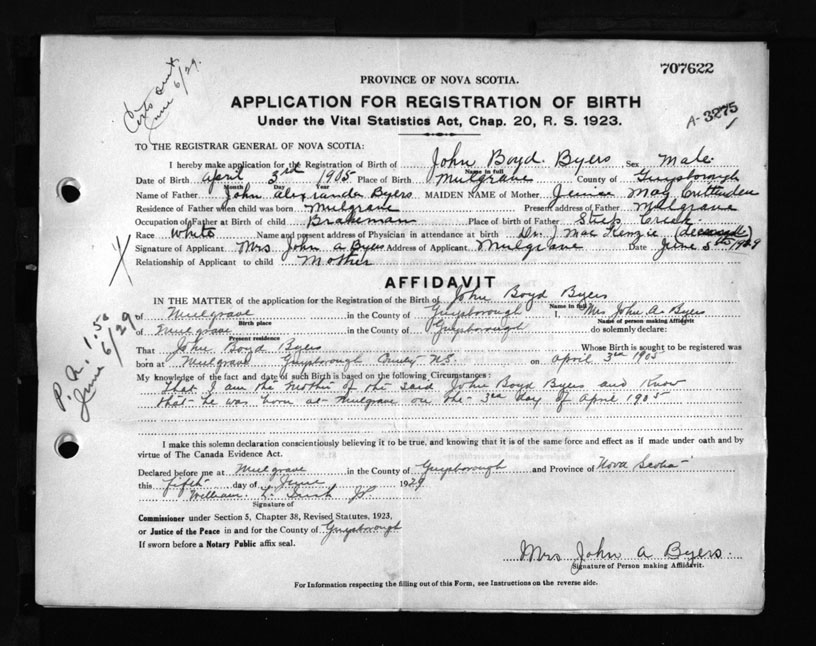 707622
PROVINCE OF NOVA SCOTIA.
APPLICATION FOR REGISTRATION OF BIRTH
Under the Vital Statistics Act, Chap. 20, R. S. 1923.
A-3275
June 6/29.
TO THE REGISTRAR GENERAL OF NOVA SCOTIA:
I hereby make application for the Registration of Birth of John Boyd Byers Sex Male
Name in full
Date of Birth April 3rd 1905 Place of Birth Mulgrave County of Guysborough
Month Day Year
Name of Father John Alexander Byers MAIDEN NAME of Mother May Crittenden
Residence of Father when child was born Mulgrave Present address of Father Mulgrave
Occupation of Father at Birth of child Brakeman Place of birth of Father Steep Creek
Race White Name and present address of Physician in attendance at birth Dr. J Mac Kenzie (deceased)
Signature of Applicant Mrs John A Byers Address of Applicant Mulgrave Date June 5th 1929
Relationship of Applicant to child Mother
AFFIDAVIT
IN THE MATTER of the application for the Registration of the Birth of John Boyd Byers
Name in full
of Mulgrave in the County of Guysborough I, Mrs John A. Byers
Birth place Name of person making Affidavit
of Mulgrave in the County of Guysborough do solemnly declare:
Present residence
That John Boyd Byers Whose Birth is sought to be registered was
born at Mulgrave Guysborough County N.S. on April 3rd 1905
My knowledge of the fact and date of such Birth is based on the following Circumstances:
That I am the Mother of the said John Boyd Byers and Know
that he was born at Mulgrave on the 3rd day of April 1905
P.R. 1.50
June 6/29
I make this solemn declaration conscientiously believing it to be true, and knowing that it is of the same force and effect as if made under oath and by
virtue of The Canada Evidence Act.
Declared before me at Mulgrave in the County of Guysborough and Province of Nova Scotia
this fifth day of June 1929
William
Signature of
Commissioner under Section 5, Chapter 38, Revised Statutes, 1923,
or Justice of the Peace in and for the County of Guysborough
If sworn before a Notary Public affix seal.
Mrs John A Byers.
Signature of Person making Affidavit.
For Information respecting the filling out of this Form, see Instructions on the reverse side.